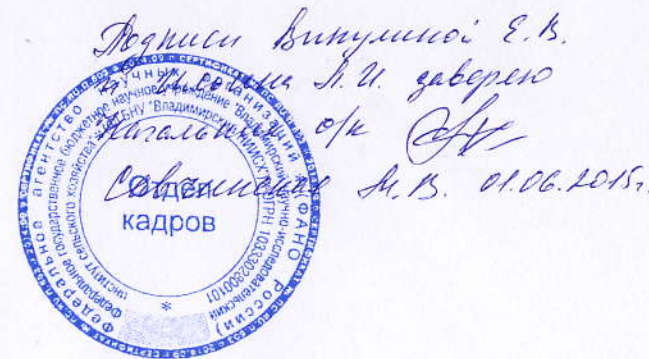 Подписи Винулиной Е. В.
и заверяю
Начальник о/к
М. В. 01.06.2015г.
Отдел
кадров
Федеральное агентство научных организаций (ФАНО России)
Федеральное государственное бюджетное научное учреждение "Владимирский научно-исследовательский
институт сельского хозяйства" (ФГБНУ "Владимирский НИИСХ") ОГРН 1033302800101